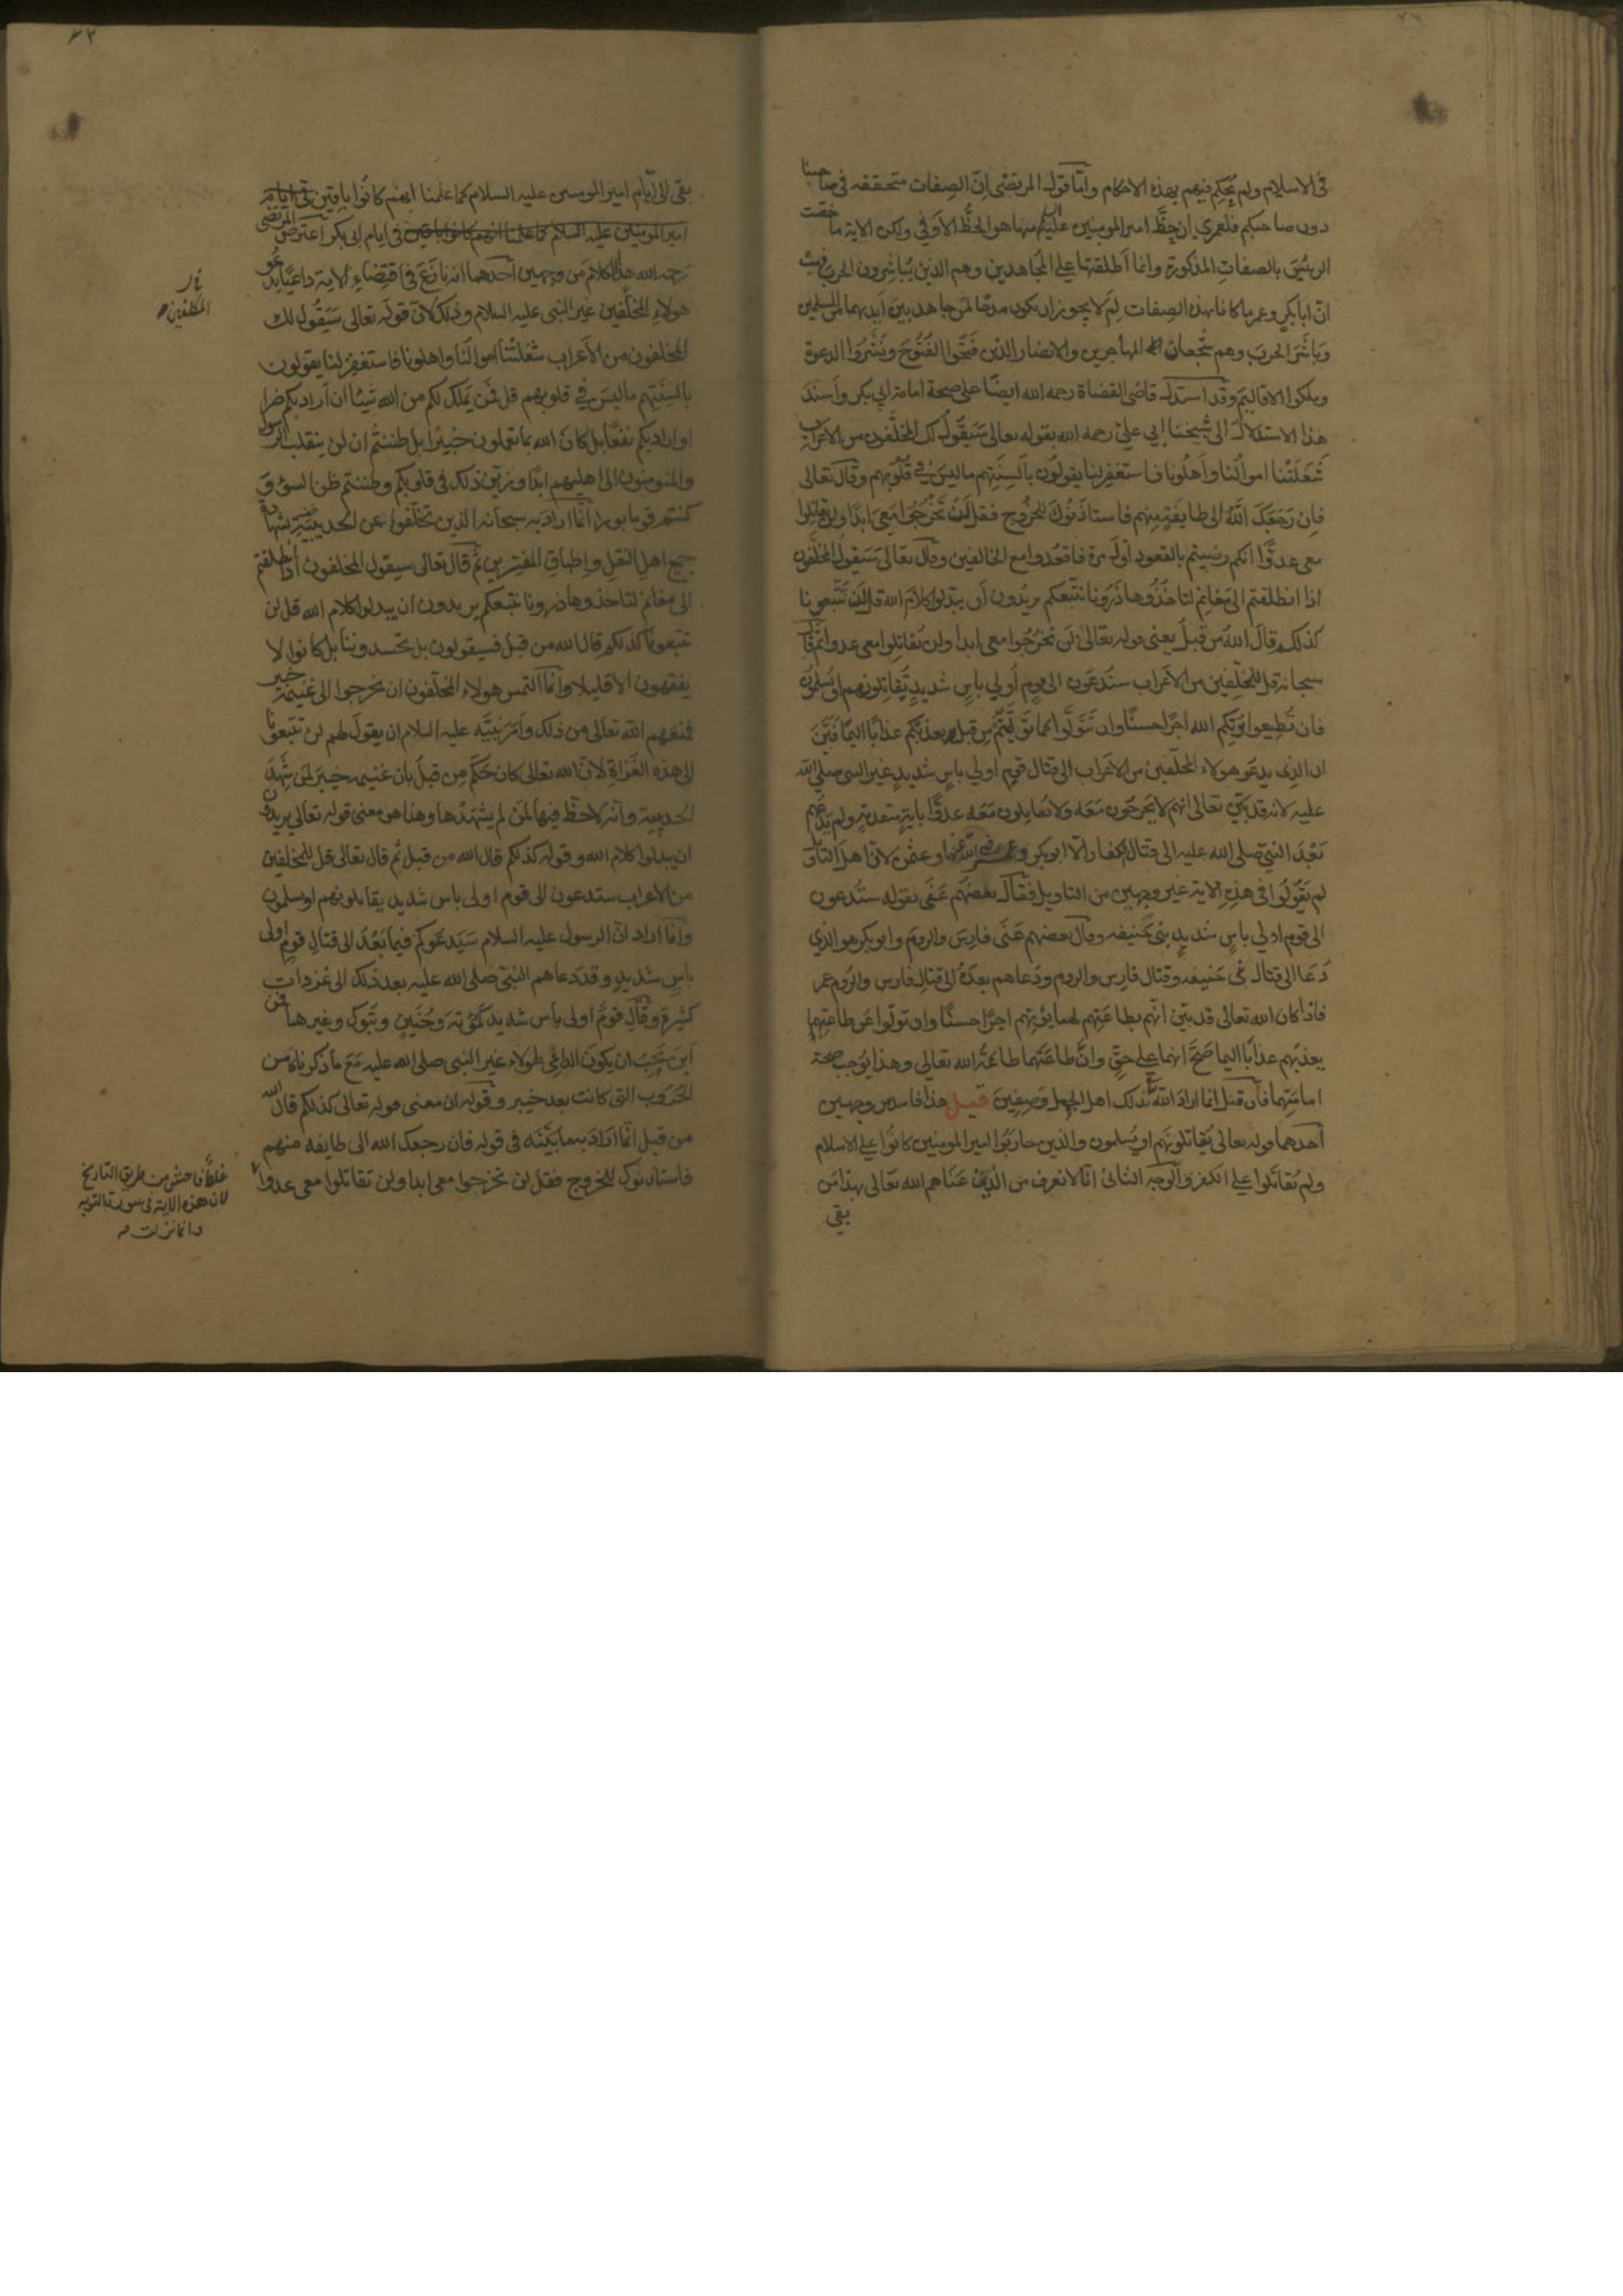 في الاسلام ولم يحكم فيهم بهذه الاحكام واما قول المرتضى ان الصفات متحققه في صاحبنا
دون صاحبكم فلعمري ان حظ امير المومنين عليه السلام منها هو الحظ الاوفي ولكن الاية ما خصت
الرئيس بالصفات المذكورة وانما اطلقتها على المجاهدين وهم الذين يباشرون الحرب فهب
ان ابا بكر وعمر ما كانا بهذه الصفات لم لا يجوز ان يكون مدحا لمن جاهد بين ايديهما من المسلمين
وباشر الحرب وهم شجعان المهاجرين والانصار الذين فتحوا الفتوح ونشروا الدعوة
وملكوا الاقاليم وقد استدل قاضى القضاة رحمه الله ايضا على صحة امامة ابي بكر واسند
هذا الاستدلال الى شيخنا ابي علي رحمه الله بقوله تعالى سيقول لك المخلفون من الاعراب
شغلتنا اموالنا واهلونا فاستغفر لنا يقولون بالسنتهم ما ليس في قلوبهم وقال تعالى
فان رجعك الله الى طايفة منهم فاستاذنوك للخروج فقل لن تخرجوا معي ابدا ولن تقاتلوا
معي عدوا انكم رضيتم بالقعود اول مرة فاقعدوا مع الخالفين وقال تعالى سيقول المخلفون
اذا انطلقتم الى مغانم لتاخذوها ذرونا نتبعكم يريدون ان يبدلوا كلام الله قل لن تتبعونا
كذلكم قال الله من قبل يعني قوله تعالى لن تخرجوا معي ابدا ولن تقاتلوا معي عدوا ثم قال
سبحانه قل للمخلفين من الاعراب ستدعون الى قوم أولي باس شديد تقاتلونهم او يسلمون
فان تطيعوا يؤتكم الله اجرا حسنا وان تتولوا كما توليتم من قبل يعذبكم عذابا اليما فبين
ان الذي يدعو هولاء المخلفين من الاعراب الى قتال قوم اولي باس شديد غير النبي صلى الله
عليه لانه قد بين تعالى انهم لا يخرجون معه ولا يقاتلون معه عدوا باية متقدمة ولم يدعهم
بعد النبي صلى الله عليه الى قتال الكفار الا ابو بكر وعمر رضي الله عنهما وعثمن لان اهل التاويل
لم يقولوا في هذه الاية غير وجهين من التاويل فقال بعضهم عنى بقوله ستدعون
الى قوم اولي باس شديد بنى حنيفه وقال بعضهم عنى فارس والروم وابو بكر هو الذي
دعا الى قتال بني حنيفه وقتال فارس والروم ودعاهم بعده الى قتال فارس والروم عمر
فاذا كان الله تعالى قد بين انهم بطاعتهم لهما يؤتهم اجرا حسنا وان تولوا عن طاعتهما
يعذبهم عذابا اليما صح انهما على حق وان طاعتهما طاعة الله تعالي وهذا يوجب صحة
امامتهما فان قيل انما اراد الله بذلك اهل الجمل وصفين قيل هذا فاسد من وجهين
احدهما قوله تعالى تقاتلونهم او يسلمون والذين حاربوا امير المومنين كانوا على الاسلام
ولم يقاتلوا على الكفر والوجه الثاني انا لا نعرف من الذين عناهم الله تعالى بهذا من
بقي
٢٢
بقى الى ايام امير المومنين عليه السلام كما علمنا انهم كانوا باقين في ايام
امير المومنين عليه السلام كما علمنا انهم كانوا باقين في ايام ابى بكر اعترض المرتضى
رحمه الله هذا الكلام من وجهين احدهما انه نازع فى اقتضاء الاية داعيا يدعو
هولاء المخلفين غير النبى عليه السلام وذلك لان قوله تعالى سيقول لك
المخلفون من الاعراب شغلتنا اموالنا واهلونا فاستغفر لنا يقولون
بالسنتهم ما ليس في قلوبهم قل فمن يملك لكم من الله شيئا ان اراد بكم ضرا
او اراد بكم نفعا بل كان الله بما تعملون خبيرا بل ظننتم ان لن ينقلب الرسول
والمؤمنون الى اهليهم ابدا وزين ذلك في قلوبكم وظننتم ظن السوء و
كنتم قوما بورا انما اراد به سبحانه الذين تخلفوا عن الحديبية بشهادة
جميع اهل النقل واطباق المفسرين ثم قال تعالى سيقول المخلفون اذا انطلقتم
الى مغانم لتاخذوها ذرونا نتبعكم يريدون ان يبدلوا كلام الله قل لن
تتبعونا كذلكم قال الله من قبل فسيقولون بل تحسدوننا بل كانوا لا
يفقهون الا قليلا وانما التمس هولاء المخلفون ان يخرجوا الى غنيمة خيبر
فمنعهم الله تعالى من ذلك وامر نبيه عليه السلام ان يقول لهم لن تتبعونا
الى هذه الغزاة لان الله تعالى كان حكم من قبل بان غنيمة خيبر لمن شهد
الحديبية وانه لا حظ فيها لمن لم يشهدها وهذا هو معنى قوله تعالى يريدون
ان يبدلوا كلام الله وقوله كذلكم قال الله من قبل ثم قال تعالى قل للمخلفين
من الاعراب ستدعون الى قوم اولى باس شديد تقاتلونهم او يسلمون
وانما اراد ان الرسول عليه السلام سيدعوكم فيما بعد الى قتال قوم اولى
باس شديد وقد دعاهم النبي صلى الله عليه بعد ذلك الى غزوات
كثيرة وقتال قوم اولى باس شديد كمؤتة وحنين وتبوك وغيرها فمن
اين يجب ان يكون الداعي لهولاء غير النبي صلى الله عليه مع ما ذكرناه من
الحروب التى كانت بعد خيبر وقوله ان معنى قوله تعالى كذلكم قال الله
من قبل انما اراد به ما بينه فى قوله فان رجعك الله الى طايفه منهم
فاستاذنوك للخروج فقل لن تخرجوا معي ابدا ولن تقاتلوا معي عدوا
المخلفين
غلط فاحش من طريق التاريخ
لان هذه الاية في سورة التوبه
وانما نزلت